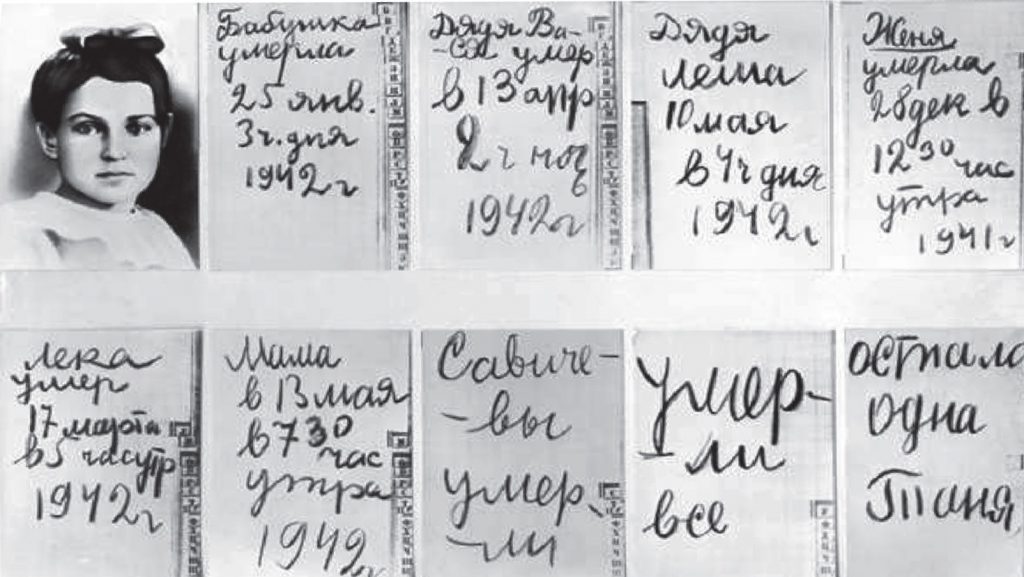 Бабушка
умерла
25 янв.
3 ч. дня
1942 г
Дядя Ва-
ся умер
в 13 апр
2 ч ноч
ь
1942 г
Дядя
Леша
10 мая
в 4 ч дня
1942 г
Женя
умерла
28 дек в
12 30 час
утра
1941 г
Лека
умер
17 марта
в 5 час утр
1942 г
Мама
в 13 мая
в 7 30
час
утра
1942
Савиче-
-вы
умер
-ли
Умер-
-ли
все
Остала
одна
Таня